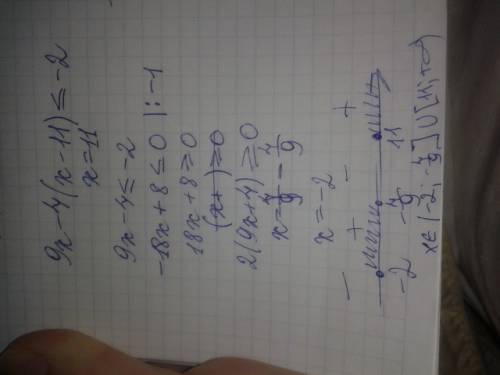 9x-4(x-11) ≤ -2
x=11
9x-4 ≤ -2
-18x+8 ≤ 0 |:-1
18x+8 ≥ 0
(x+ ) ≥ 0
2(9x+4) ≥ 0
x= -4/9
x=-2
- + - +
-2 -4/9 11
x∈[-2; -4/9] U [11;+∞)